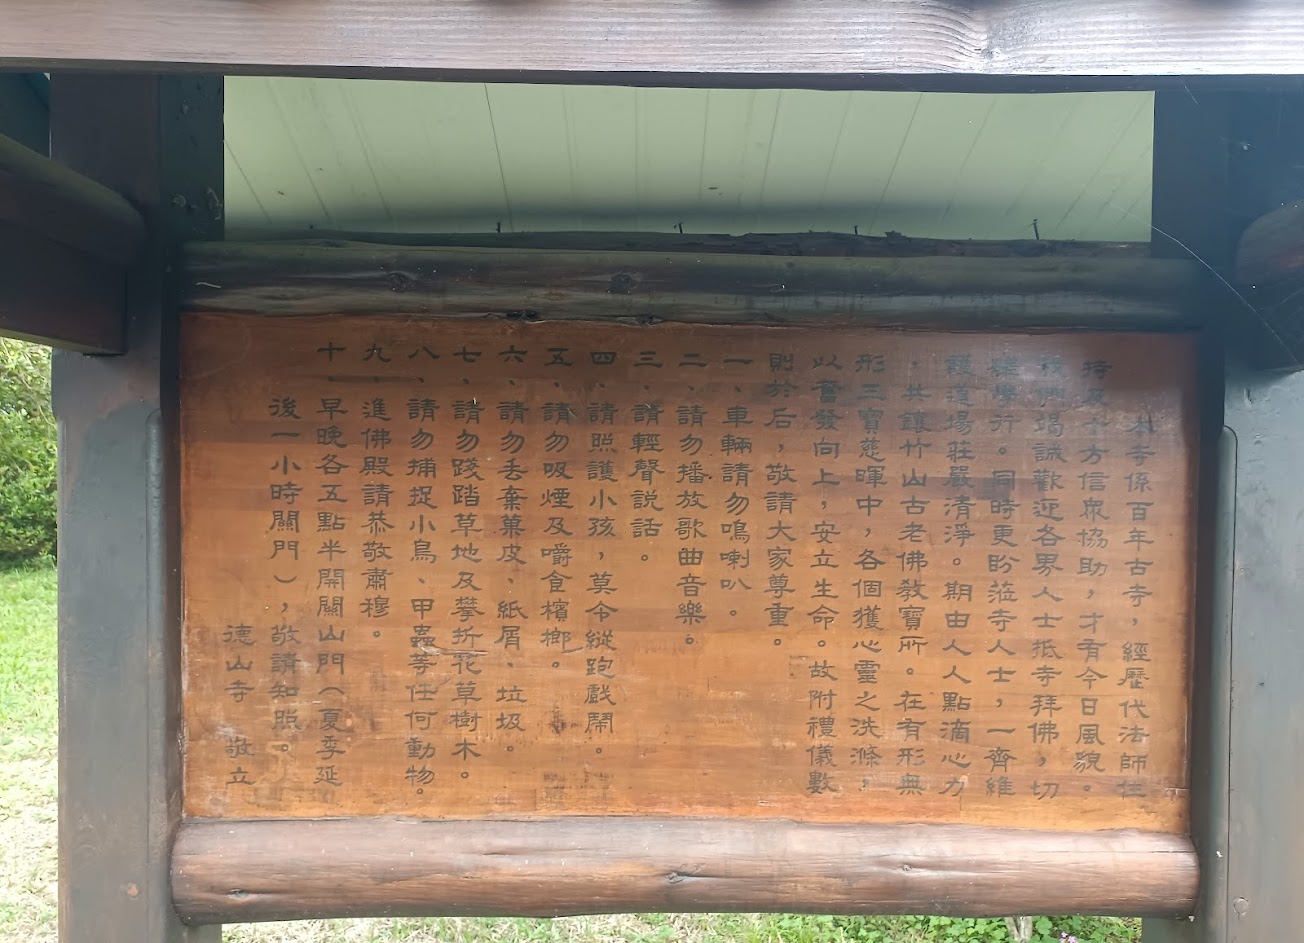 本寺係百年古寺，經歷代法師住
持及十方信眾協助，才有今日風貌。
我們竭誠歡迎各界人士抵寺拜佛，切
磋學行。同時更盼蒞寺人士，一齊維
護道場莊嚴清淨。期由人人點滴心力
，共鑲竹山古老佛教寶所。在有形無
形三寶慈暉中，各個獲心靈之洗滌，
以奮發向上，安立生命。故附禮儀數
則於后，敬請大家尊重。
一、車輛請勿鳴喇叭。
二、請勿播放歌曲音樂。
三、請輕聲說話。
四、請照護小孩，莫令縱跑戲鬧。
五、請勿吸煙及嚼食檳榔。
六、請勿丟棄菓皮、紙屑、垃圾。
七、請勿踐踏草地及攀折花草樹木。
八、請勿捕捉小鳥、甲蟲等任何動物。
九、進佛殿請恭敬肅穆。
十、早晚各五點半開關山門（夏季延
後一小時關門），敬請知照。
德山寺 敬立